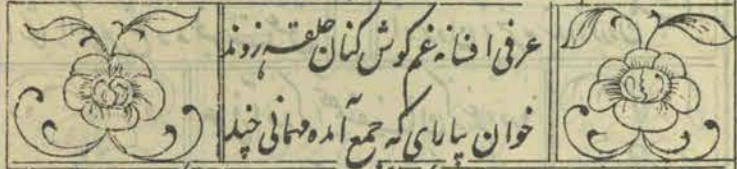 عرفی افسانه غم گوش کنان حلقه زدند
خوان بیارای که جمع آمده مهمانی چند